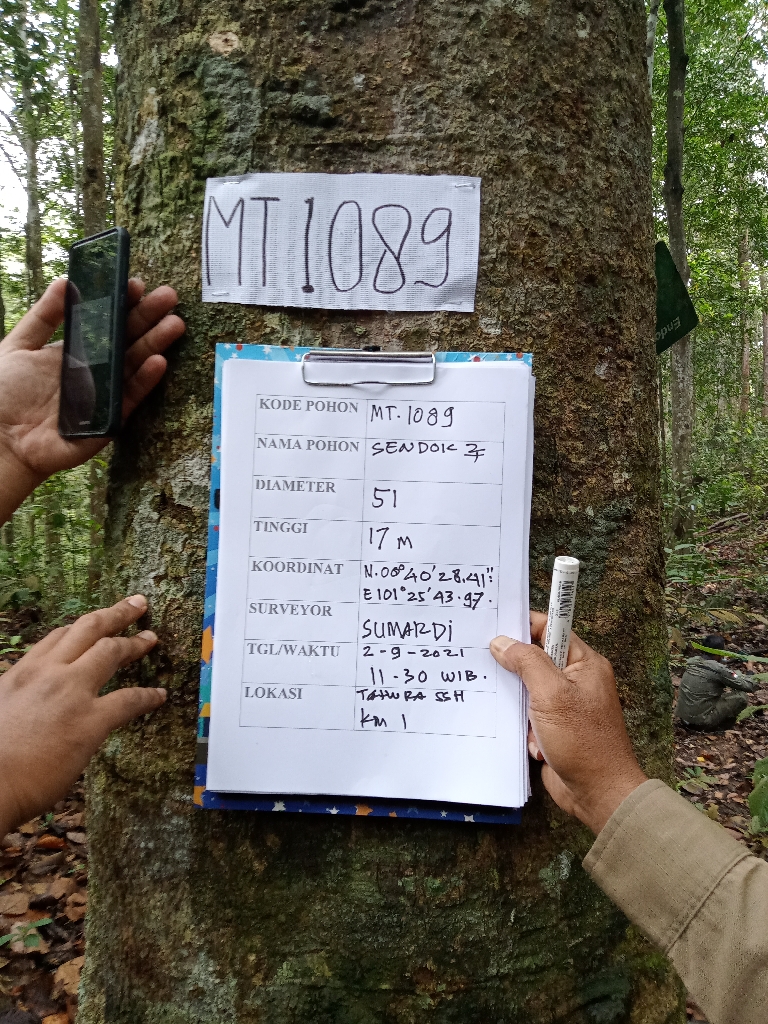 MT 1089
KODE POHON MT. 1089
NAMA POHON SENDOK
DIAMETER 51
TINGGI 17 M
KOORDINAT N.00°40'28,41"
E101°25'43.97.
SURVEYOR SUMARDi
TGL/WAKTU 2-9-2021
11-30 WIB.
LOKASI TAHURA SSH
KM 1